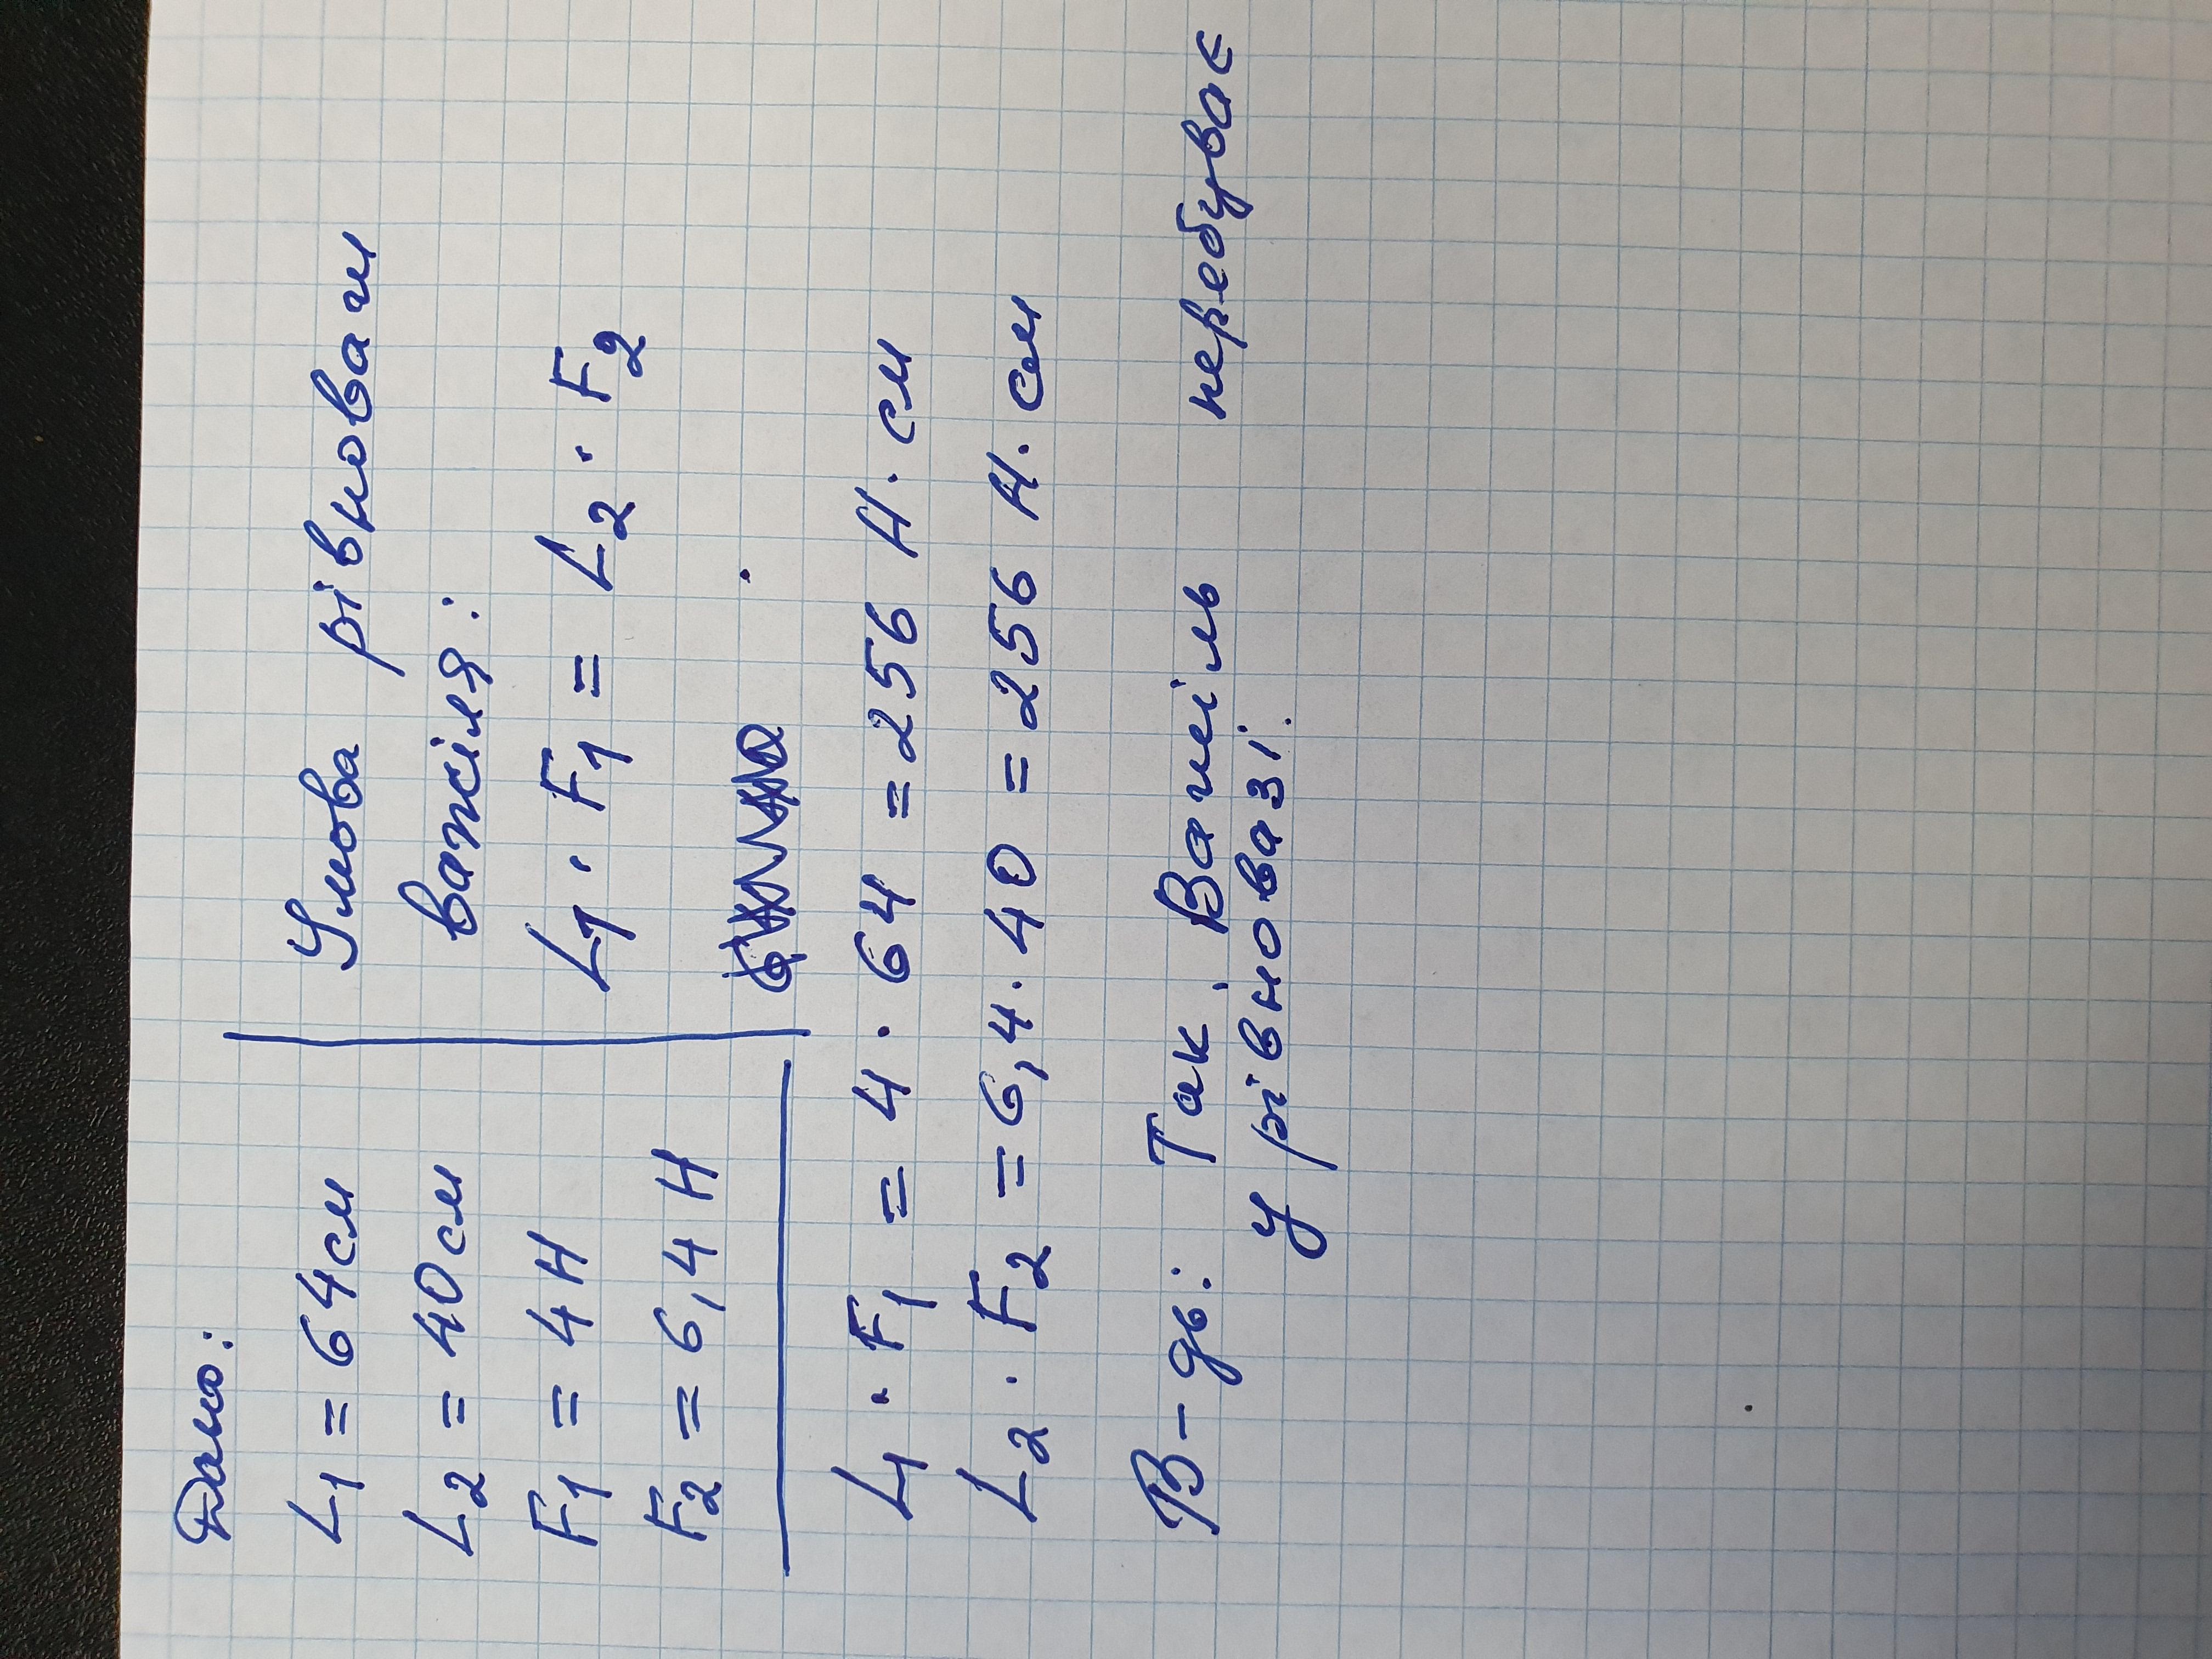 Дано:
L1 = 64см
L2 = 40см
F1 = 4Н
F2 = 6,4Н
Умова рівноваги
важіля:
L1 · F1 = L2 · F2
L1 · F1 = 4 · 64 = 256 Н·см
L2 · F2 = 6,4 · 40 = 256 Н·см
В-дь: Так. Важіль перебуває
у рівновазі.